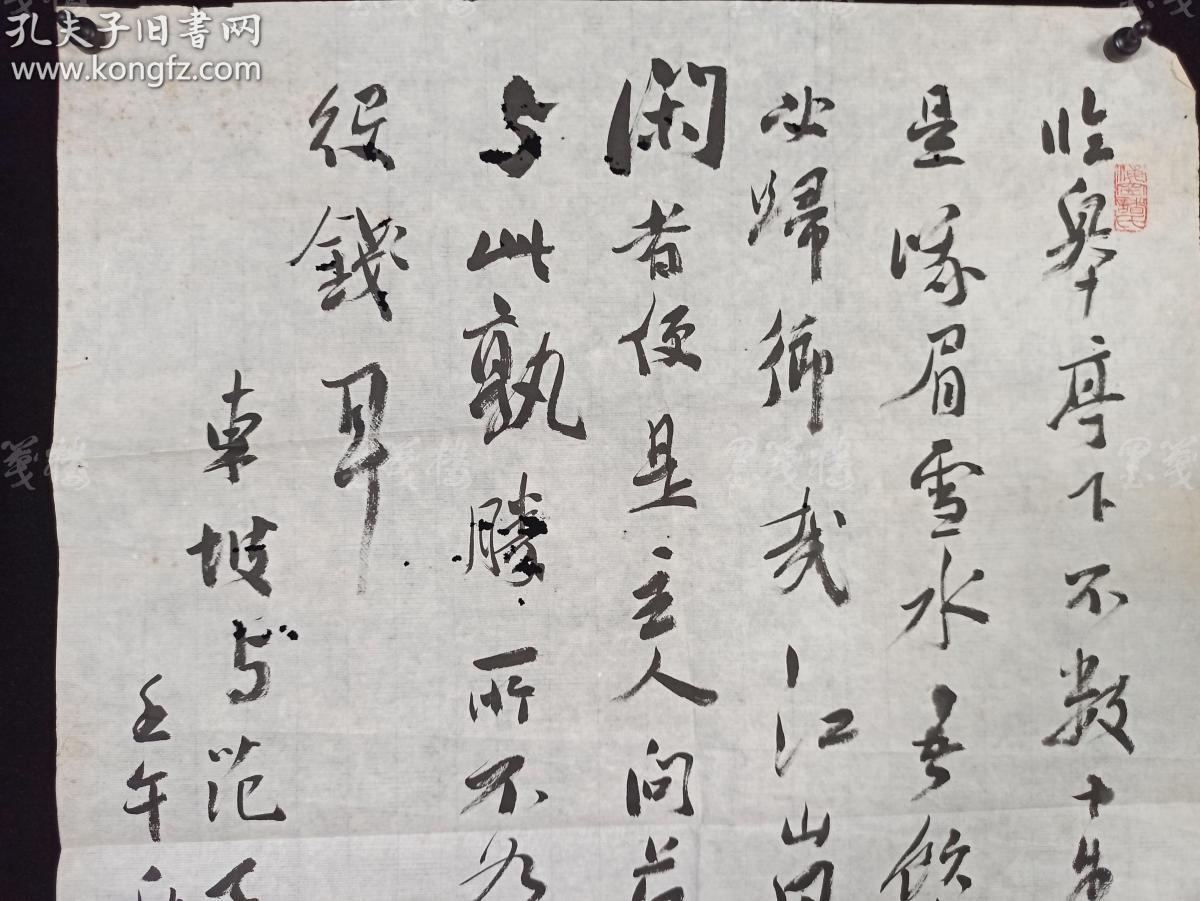 孔夫子旧书网
www.kongfz.com
临皋亭下不数十步
是峨眉雪水吾饮
必归乡哉江山风
闲者便是主人问范
与此孰勝所不如
役钱耳
东坡与范子
壬午